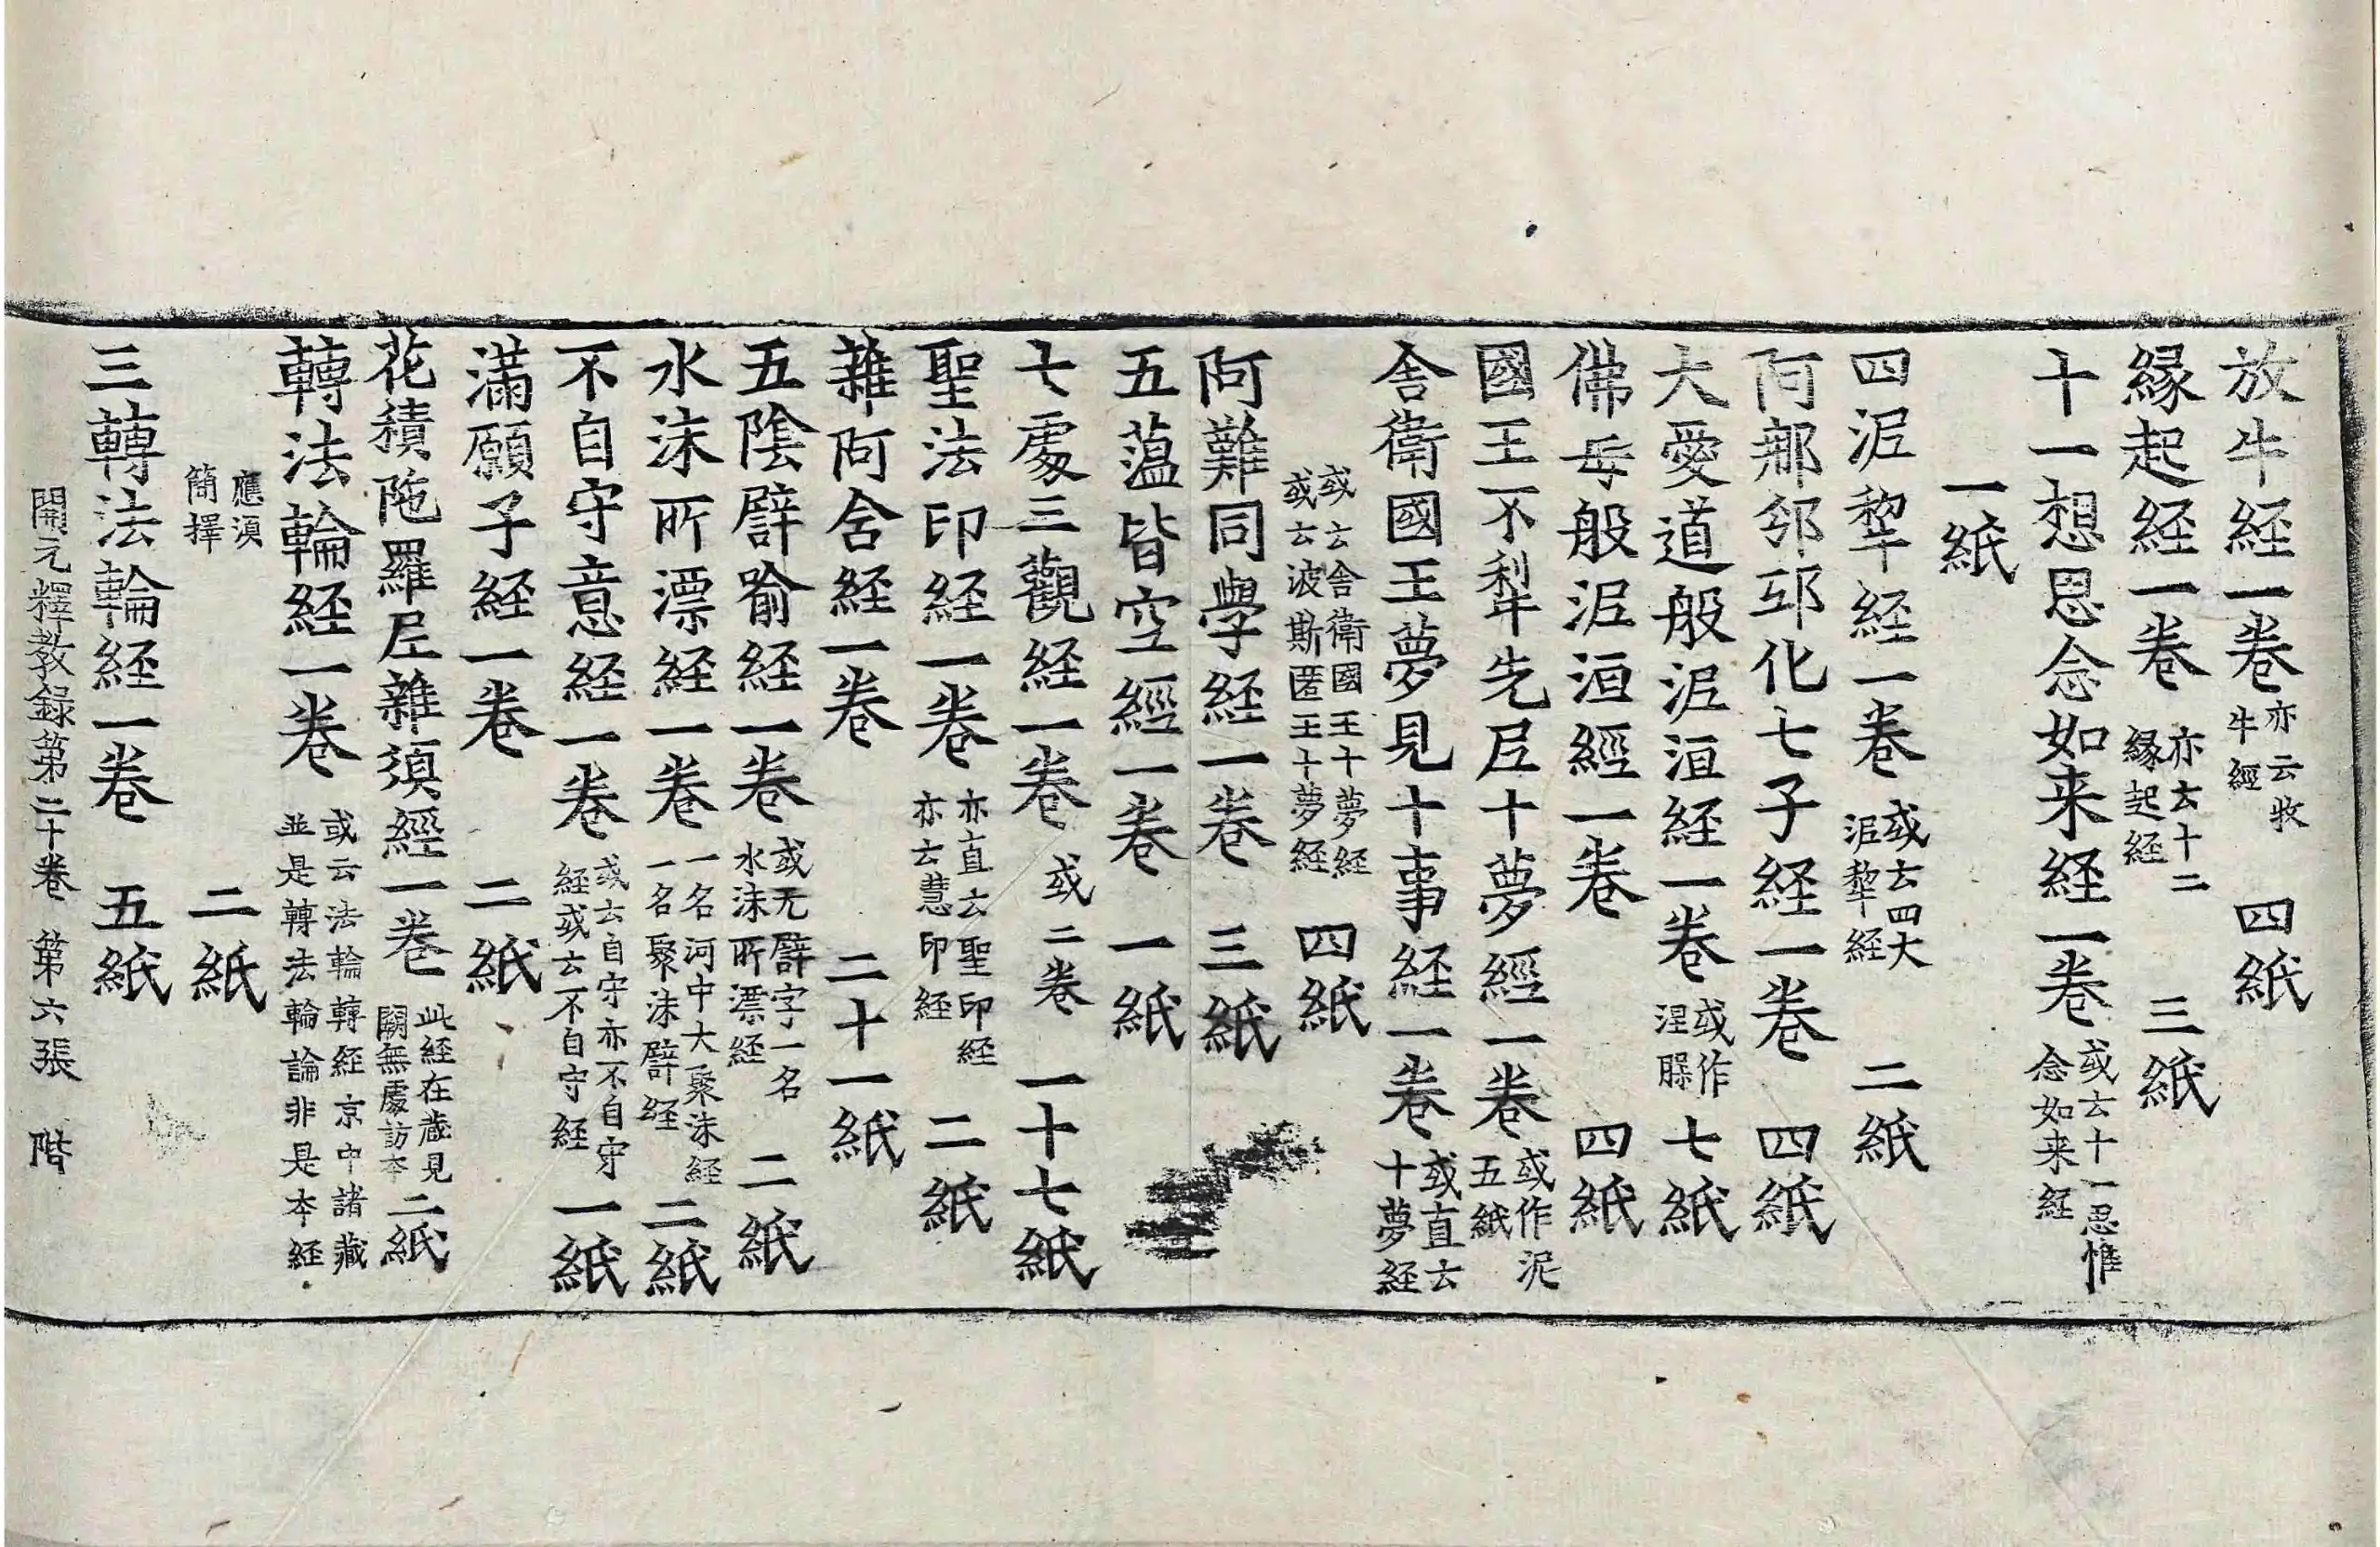 放牛経一卷 亦云牧牛經 四紙
縁起経一卷 亦云十二縁起経 三紙
十一想思念如来経一卷 或云十一思惟念如来経
一紙
四泥犁経一卷 或云四大泥犁経 二紙
阿那邠邸化七子経一卷 四紙
大愛道般泥洹経一卷 或作涅槃 七紙
佛母般泥洹經一卷 四紙
國王不犁先尼十夢經一卷 或作泥 五紙
舍衛國王夢見十事経一卷 或直云十夢経
或云舍衛國王十夢経或云波斯匿王十夢経 四紙
阿難同學経一卷 三紙
五蕴皆空經一卷 一紙
七處三觀経一卷 或二卷 一十七紙
聖法印経一卷 亦直云聖印経亦云慧印経 二紙
雜阿含経一卷 二十一紙
五陰譬喻経一卷 或无譬字一名水沫所漂経 二紙
水沫所漂経一卷 一名河中大聚沫経一名聚沫譬経 二紙
不自守意経一卷 或云自守亦不自守経或云不自守経 一紙
滿願子経一卷 二紙
花積陁羅尼雜湏經一卷 此経在歳見闕無處訪本 二紙
轉法輪経一卷 或云法輪轉経京中諸藏並是轉法輪論非是本経
應湏簡擇 二紙
三轉法輪経一卷 五紙
開元釋教録第二十卷 第六張 階